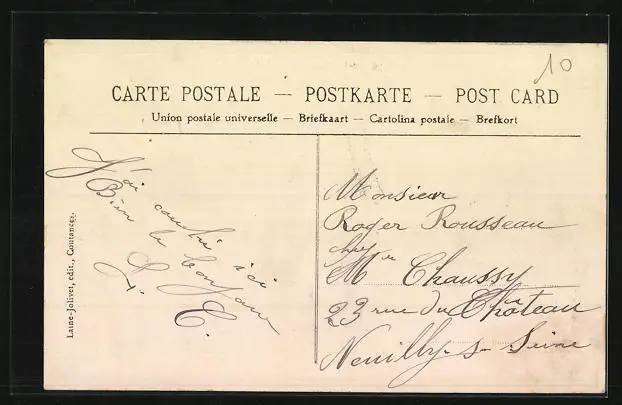 10
CARTE POSTALE — POSTKARTE — POST CARD
Union postale universelle — Briefkaart — Cartolina postale — Brefkort
J'ai couché ici
Bien le bonjour
L. C.
Monsieur
Roger Rousseau
chez
Mme Chaussy
23 rue du Château
Neuilly s Seine
Laisne-Jolivet, édit., Coutances.